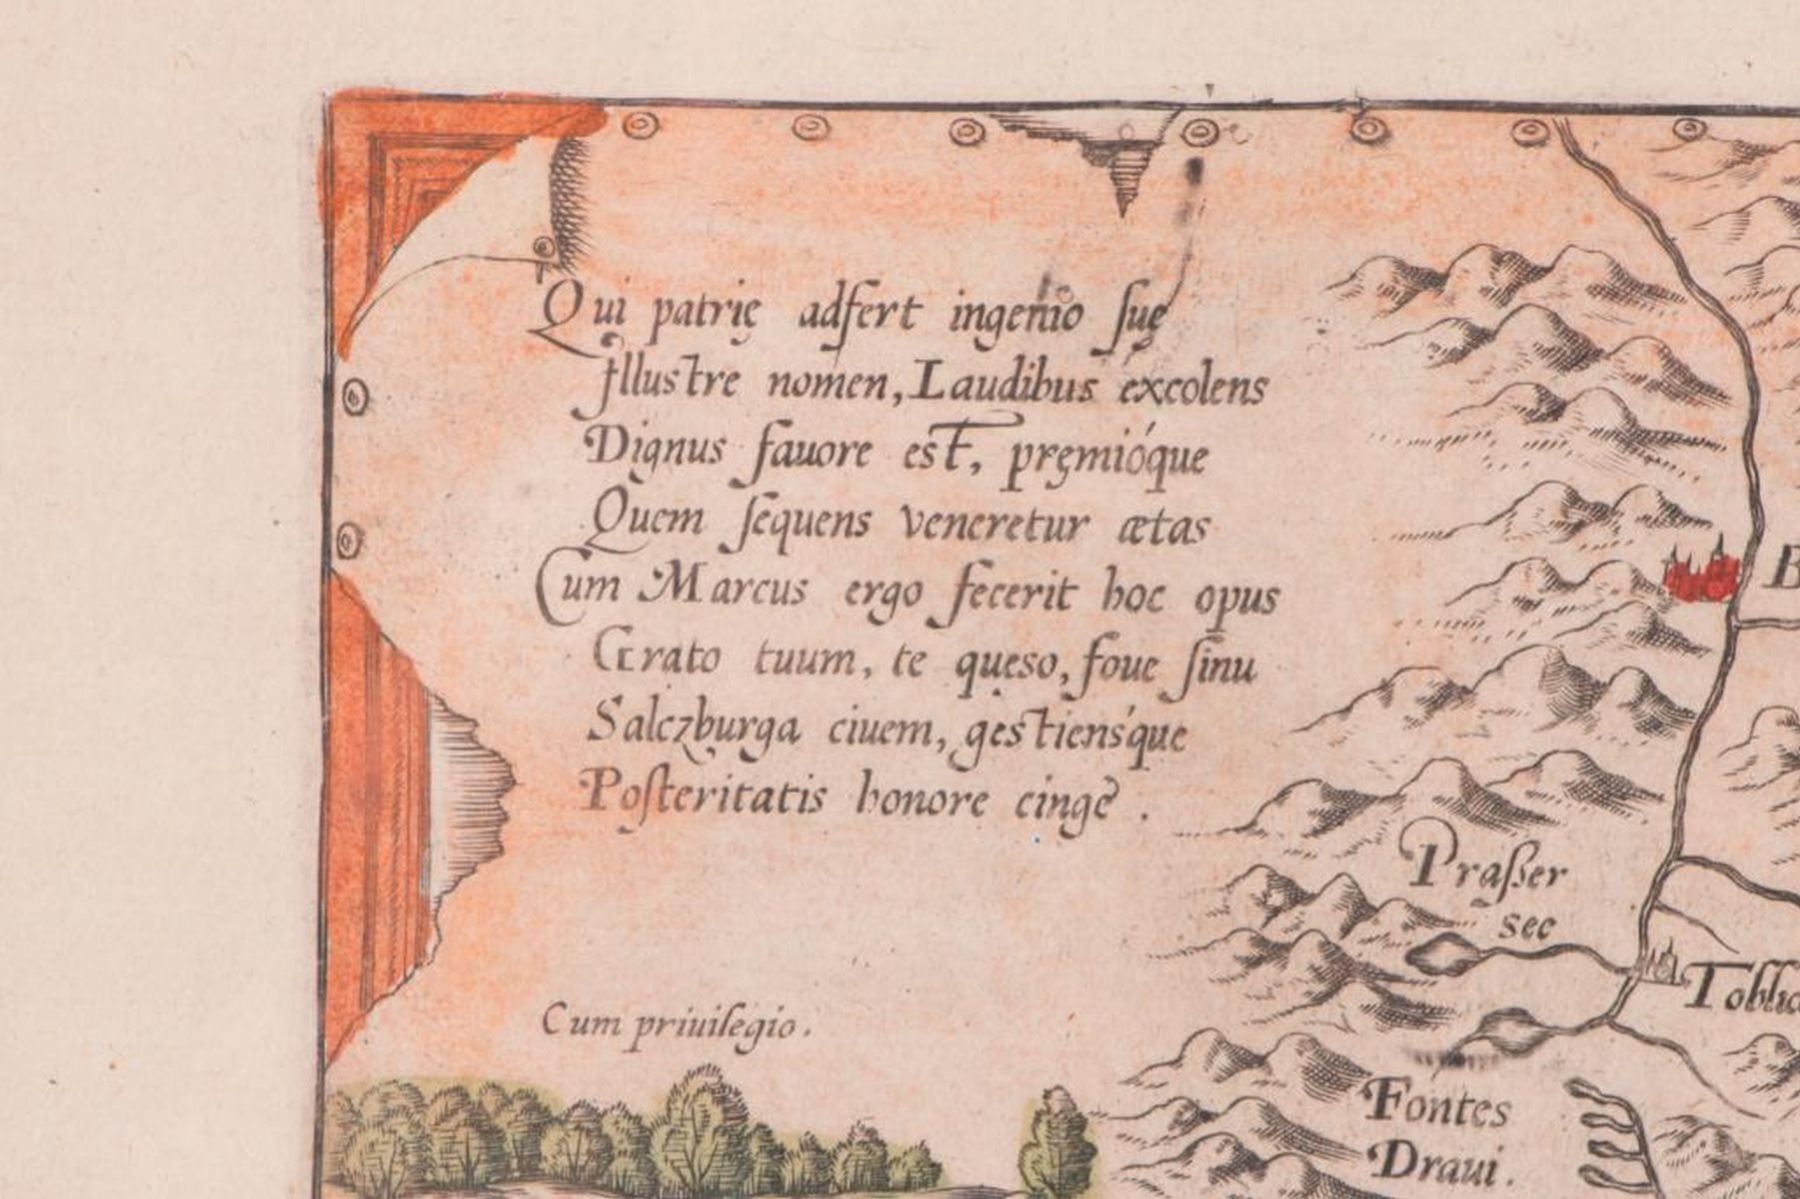 Qui patrię adfert ingenio ſuę
Illustre nomen, Laudibus excolens
Dignus fauore est, pręmióque
Quem ſequens veneretur ætas
Cum Marcus ergo fecerit hoc opus
Grato tuum, te quęso, foue ſinu
Salczburga ciuem, gestiensque
Poſteritatis honore cinge .
Cum priuilegio.
B
Praſser
see
Toblic
Fontes
Draui.